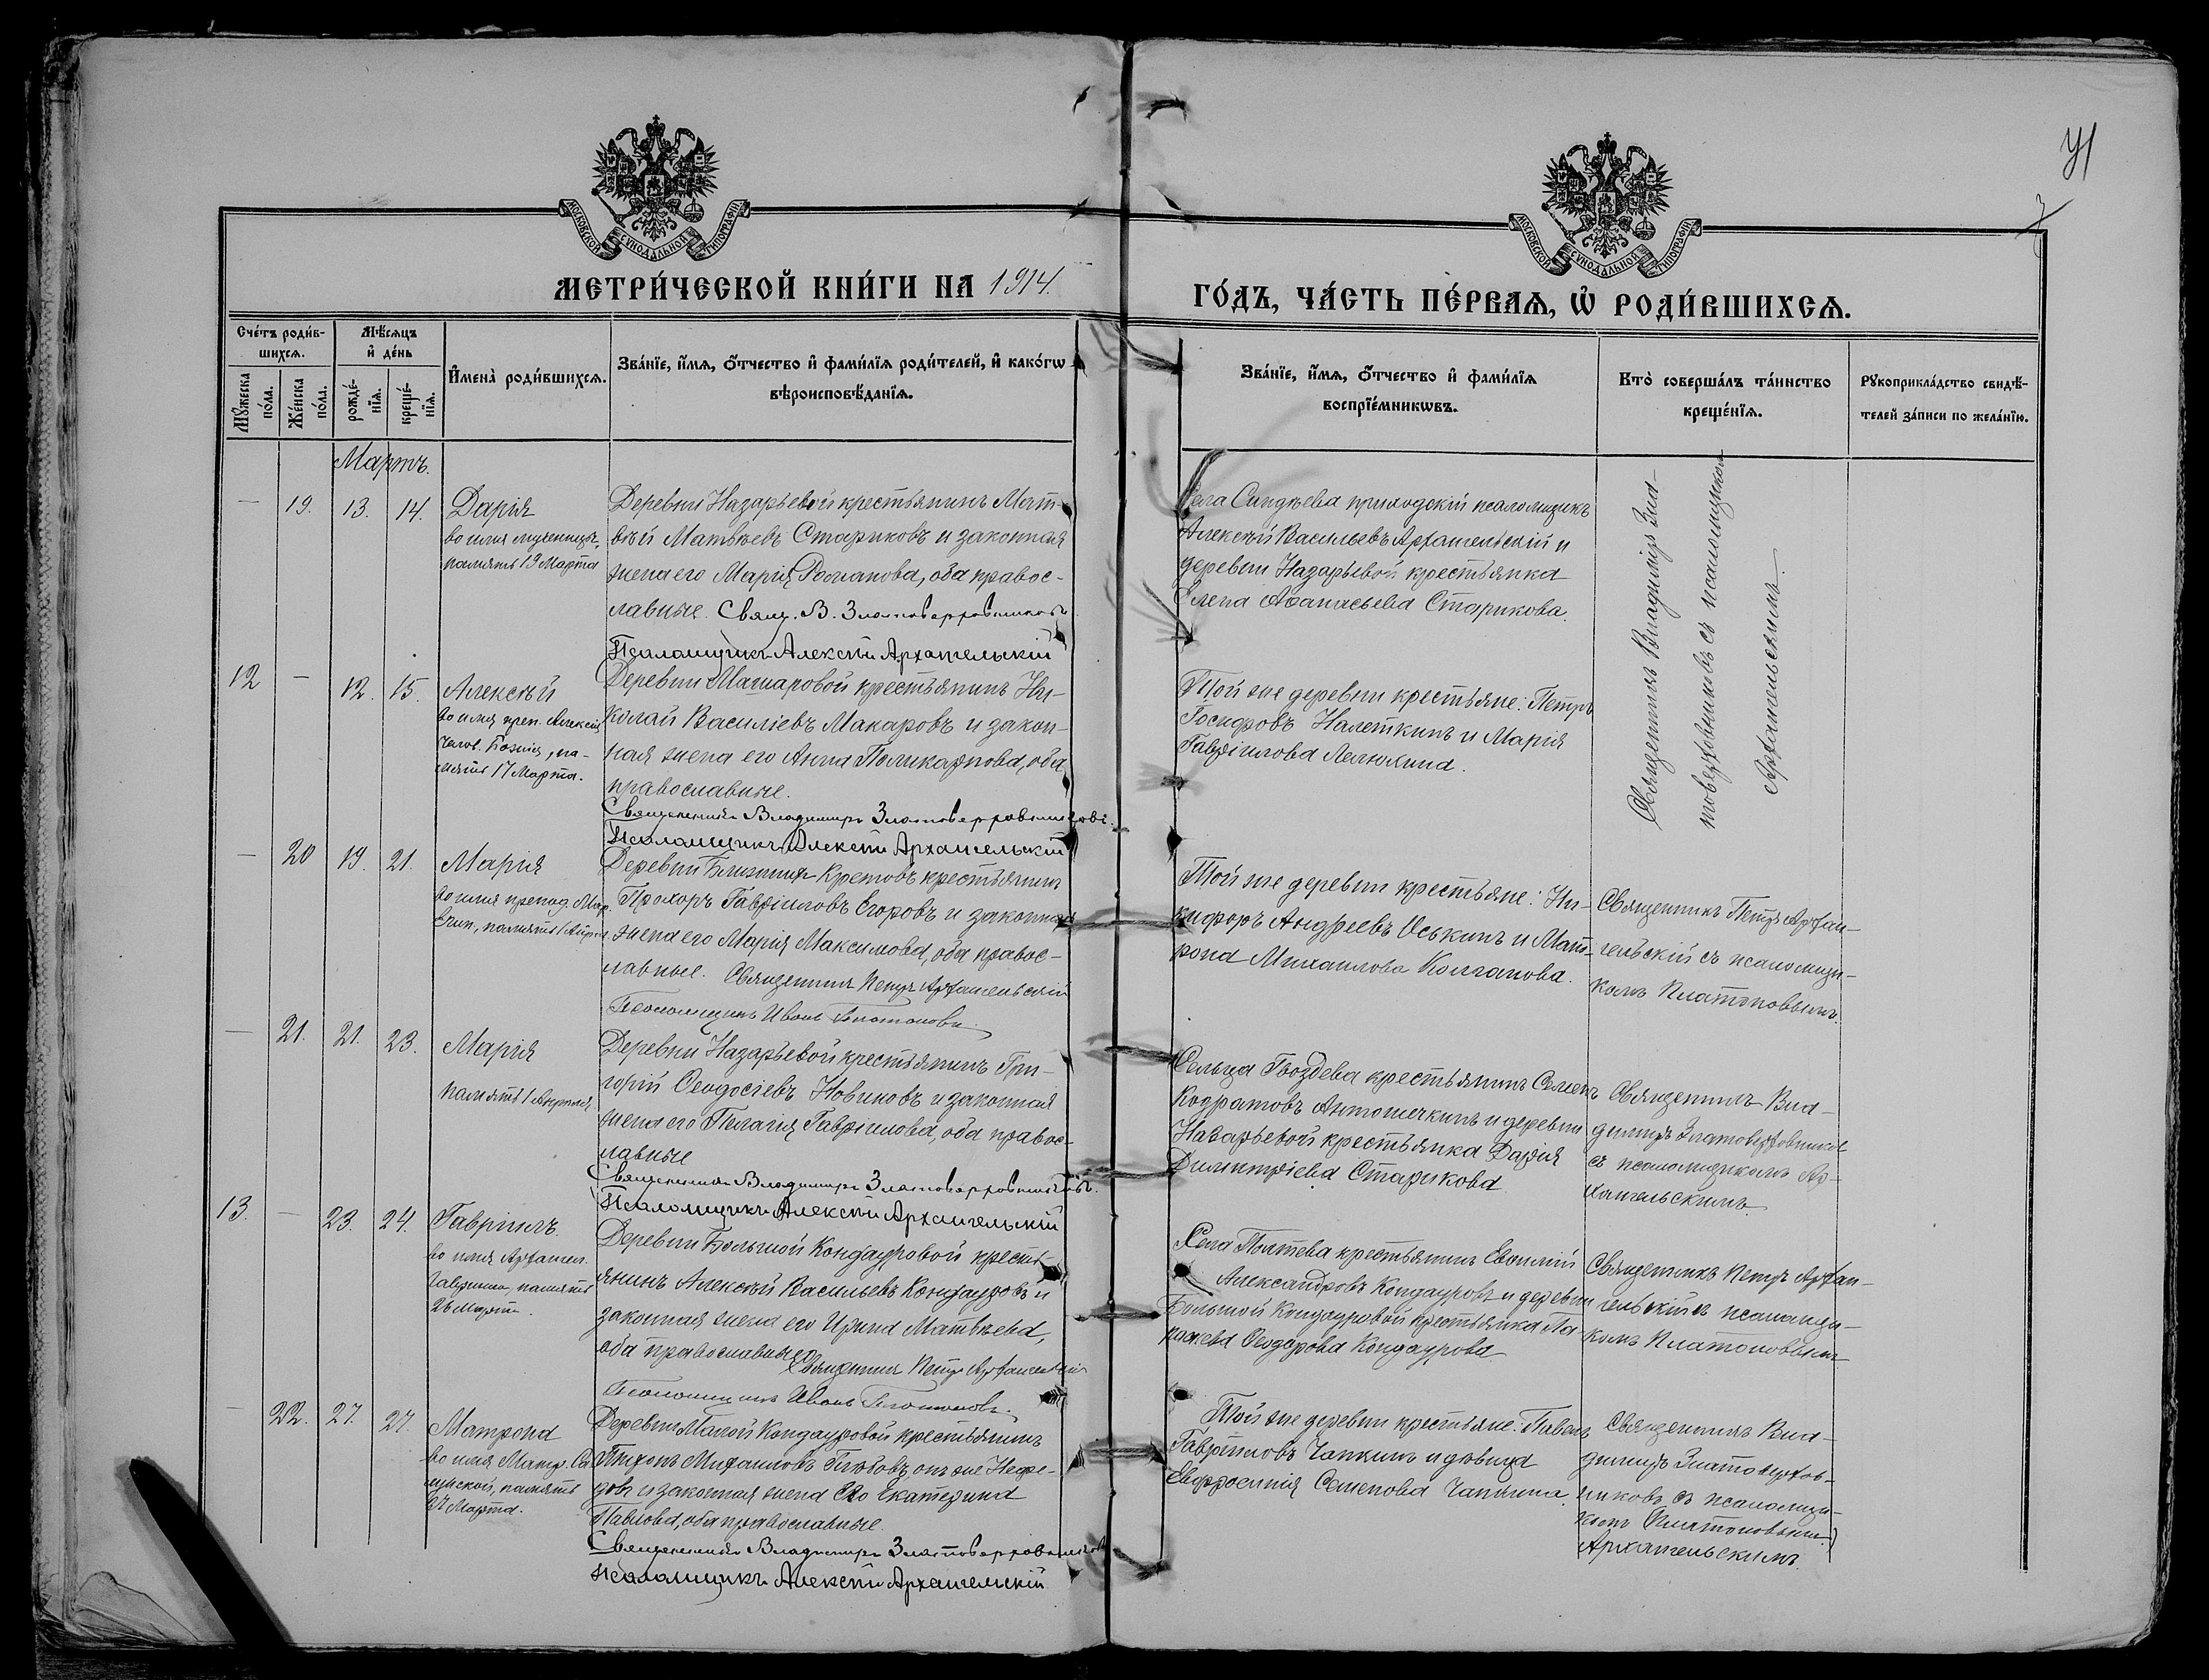 У1
МОСКОВСКОЙ СѴНОДАЛЬНОЙ ТИПОГРАФІИ
МОСКОВСКОЙ СѴНОДАЛЬНОЙ ТИПОГРАФІИ
МЕТРИ́ЧЕСКОЙ КНИ́ГИ НА 1914.
ГО́ДЪ, ЧА́СТЬ ПЕ́РВАѦ, Ѡ҆ РОДИ́ВШИХСѦ.
Сче́тъ роди́в-
шихсѧ.
Мѣ́сѧцъ
и҆ де́нь
Мꙋ́жеска
по́ла.
Же́нска
по́ла.
рожде́-
нїѧ.
креще́-
нїѧ.
И҆мена̀ роди́вшихсѧ.
Зва́нїе, и҆́мѧ, ѻ҆́тчество и҆ фами́лїѧ роди́телей, и҆ како́гѡ
вѣроисповѣ́данїѧ.
Зва́нїе, и҆́мѧ, ѻ҆́тчество и҆ фами́лїѧ
воспрїе́мникѡвъ.
Кто̀ соверша́лъ та́инство
креще́нїѧ.
Рꙋкоприкла́дство свидѣ́-
телей за́писи по жела́нїю.
Мартъ.
— 19. 13. 14.
Дарія
во имя мученицы,
память 19 Марта
Деревни Назарьевой крестьянинъ Мат-
вѣй Матвѣевъ Стариковъ и законная
жена его Марія Романова, оба правос-
лавные. Свящ. В. Златоверховниковъ
Псаломщикъ Алексѣй Архангельскій
Села Синдѣева приходскій псаломщикъ
Алексѣй Васильевъ Архангельскій и
деревни Назарьевой крестьянка
Елена Аѳанасьева Старикова.
Священникъ Владимиръ Зла-
товерховниковъ съ псаломщикомъ
Архангельскимъ.
12 — 12. 15.
Алексѣй
во имя преп. Алексія
челов. Божія, па-
мять 17 Марта.
Деревни Макаровой крестьянинъ Ни-
колай Василіевъ Макаровъ и закон-
ная жена его Анна Поликарпова, оба
православные.
Священникъ Владимиръ Златоверховниковъ.
Псаломщикъ Алексѣй Архангельскій
Той же деревни крестьяне: Петръ
Іосифовъ Налеткинъ и Марія
Гавріилова
— 20 19. 21.
Марія
во имя препод. Мар.
Егип., память 1 Апрѣл.
Деревни Ближнихъ Кретовъ крестьянинъ
Прохоръ Гавріиловъ Егоровъ и законная
жена его Марія Максимова, оба правос-
лавные. Священникъ Петръ Архангельскій
Псаломщикъ Иванъ Платоновъ.
Той же деревни крестьяне: Ни-
кифоръ Андреевъ Оськинъ и Мат-
рона Михаилова Колганова.
Священникъ Петръ Архан-
гельскій съ псаломщи-
комъ Платоновымъ.
— 21. 21. 23.
Марія
память 1 Апрѣля,
Деревни Назарьевой крестьянинъ Гри-
горій Ѳеодосіевъ Новиковъ и законная
жена его Пелагія Гавріилова, оба правос-
лавные
Священникъ Владимиръ Златоверховниковъ.
Псаломщикъ Алексѣй Архангельскій
Сельца Гвоздева крестьянинъ Семенъ
Кодратовъ Антошечкинъ и деревни
Назарьевой крестьянка Дарія
Димитріева Старикова
Священникъ Вла-
димиръ Златоверховников
съ псаломщикомъ Ар-
хангельскимъ.
13. — 23. 24.
Гавріилъ
во имя Архангел.
Гавріила, память
26 Марта.
Деревни Большой Кондауровой кресть-
янинъ Алексѣй Васильевъ Кондауровъ и
законная жена его Ирина Матвѣева,
оба православные.
Священникъ Петръ Архангельскій
Псаломщикъ Иванъ Платоновъ.
Села крестьянинъ
Александровъ Кондауровъ и деревни
Большой Кондауровой крестьянка
Ѳеодорова Кондаурова.
Священникъ Петръ Архан-
гельскій съ псаломщи-
комъ Платоновымъ
— 22. 27. 27.
Матрона
во имя Матр. Со-
лунской, память
27 Марта.
Деревни Малой Кондауровой крестьянинъ
Тихонъ Михаиловъ Глѣбовъ, онъ же Нефе-
довъ и законная жена Его Екатерина
Павлова, оба православные.
Священникъ Владимиръ Златоверховниковъ
Псаломщикъ Алексѣй Архангельскій
Той же деревни крестьяне: Павелъ
Гавріиловъ Чапкинъ и дѣвица
Евфросинія Семенова Чапкина.
Священникъ Вла-
димиръ Златоверхов-
никовъ съ псаломщи-
комъ Платоновымъ)
Архангельскимъ.